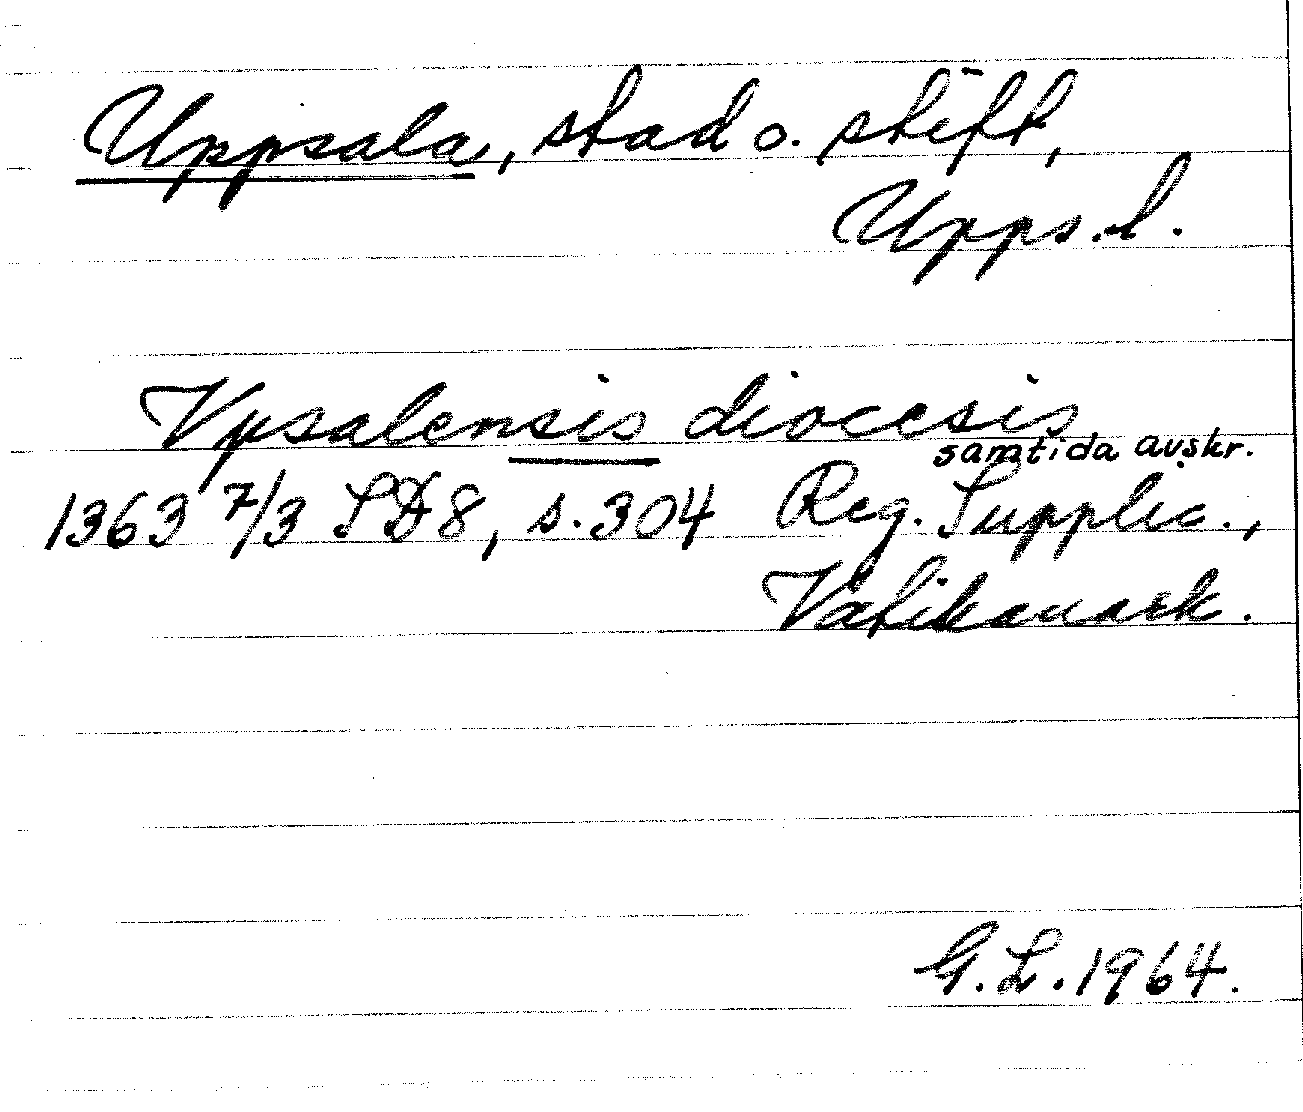 Uppsala, stad o. stift,
Upps. l.
Vpsalensis diocesis
samtida avskr.
1363 7/3 SD8, s. 304 Reg. Supplic.,
Vatikanark.
G. L. 1964.